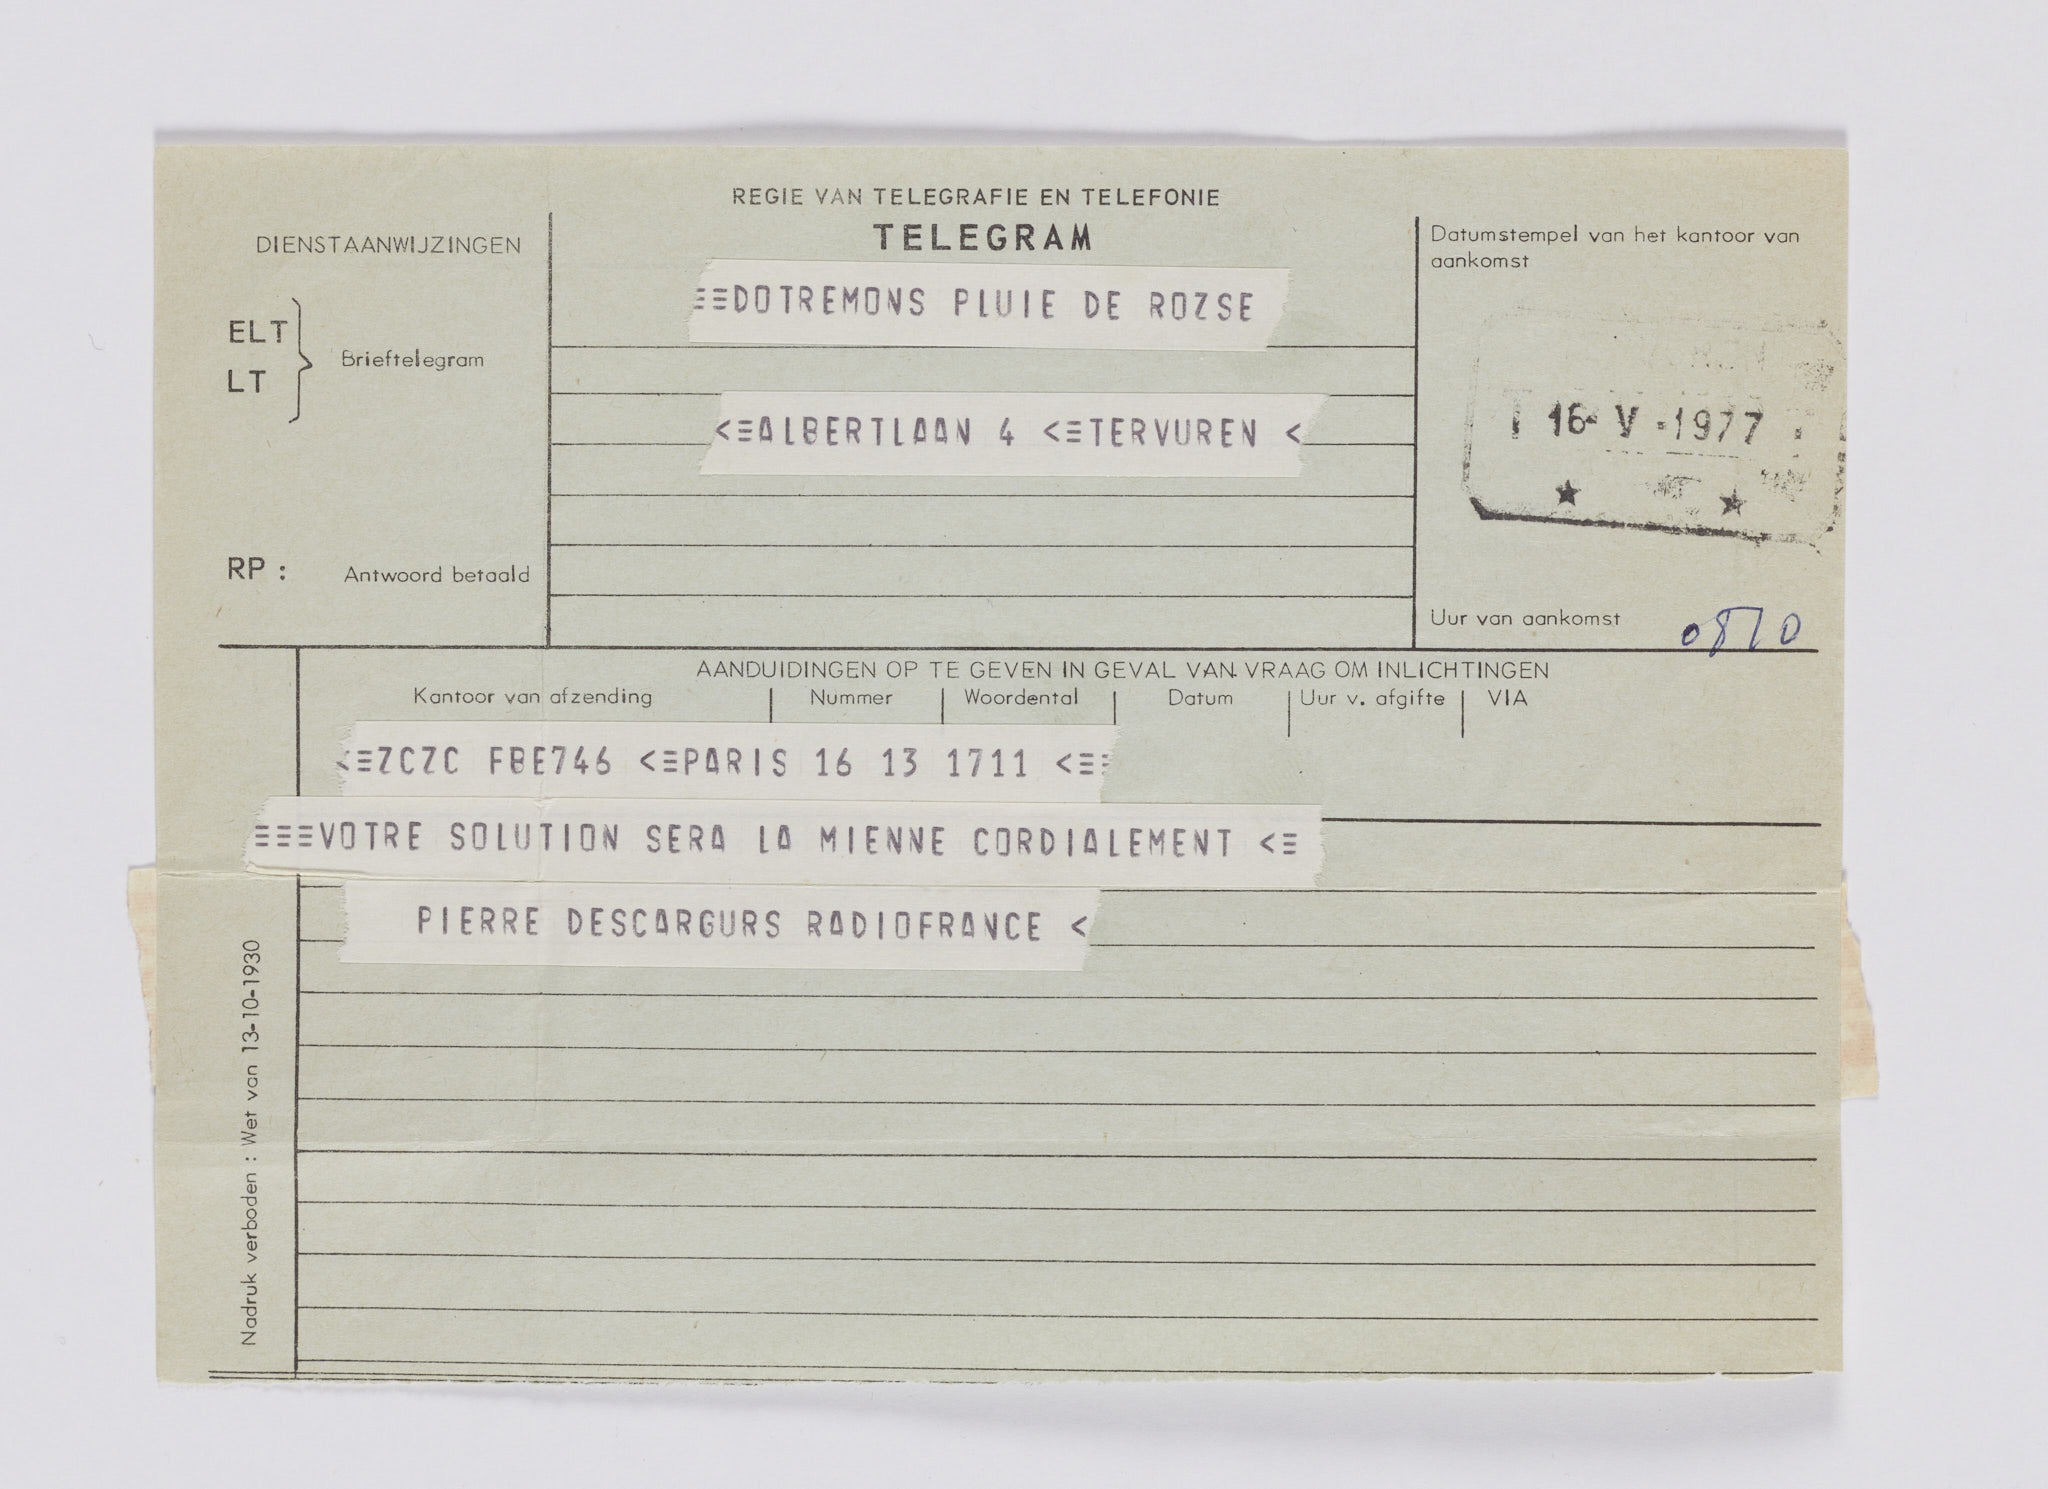 REGIE VAN TELEGRAFIE EN TELEFONIE
TELEGRAM
DIENSTAANWIJZINGEN
ELT
LT
Brieftelegram
RP : Antwoord betaald
≡≡DOTREMONS PLUIE DE ROZSE
<≡ALBERTLAAN 4 <≡TERVUREN <
Datumstempel van het kantoor van
aankomst
16- V -1977
Uur van aankomst 0810
AANDUIDINGEN OP TE GEVEN IN GEVAL VAN VRAAG OM INLICHTINGEN
Kantoor van afzending | Nummer | Woordental | Datum | Uur v. afgifte | VIA
<≡ZCZC FBE746 <≡PARIS 16 13 1711 <≡≡
≡≡≡VOTRE SOLUTION SERA LA MIENNE CORDIALEMENT <≡
PIERRE DESCARGURS RADIOFRANCE <
Nadruk verboden : Wet van 13-10-1930